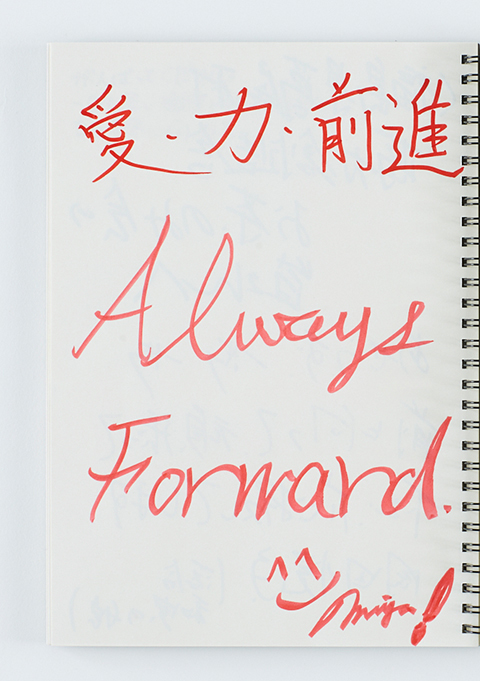 愛・力・前進
Always
Forward.